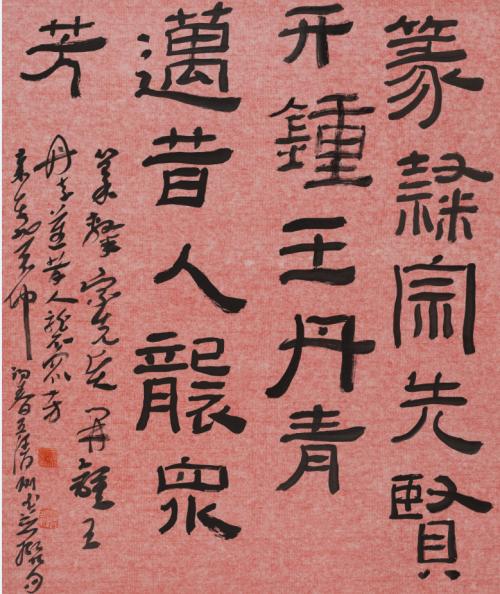 篆隸宗先賢
开鍾王丹青
邁昔人襲眾
芳
篆隸宗先賢開鍾王
丹青邁昔人襲眾芳